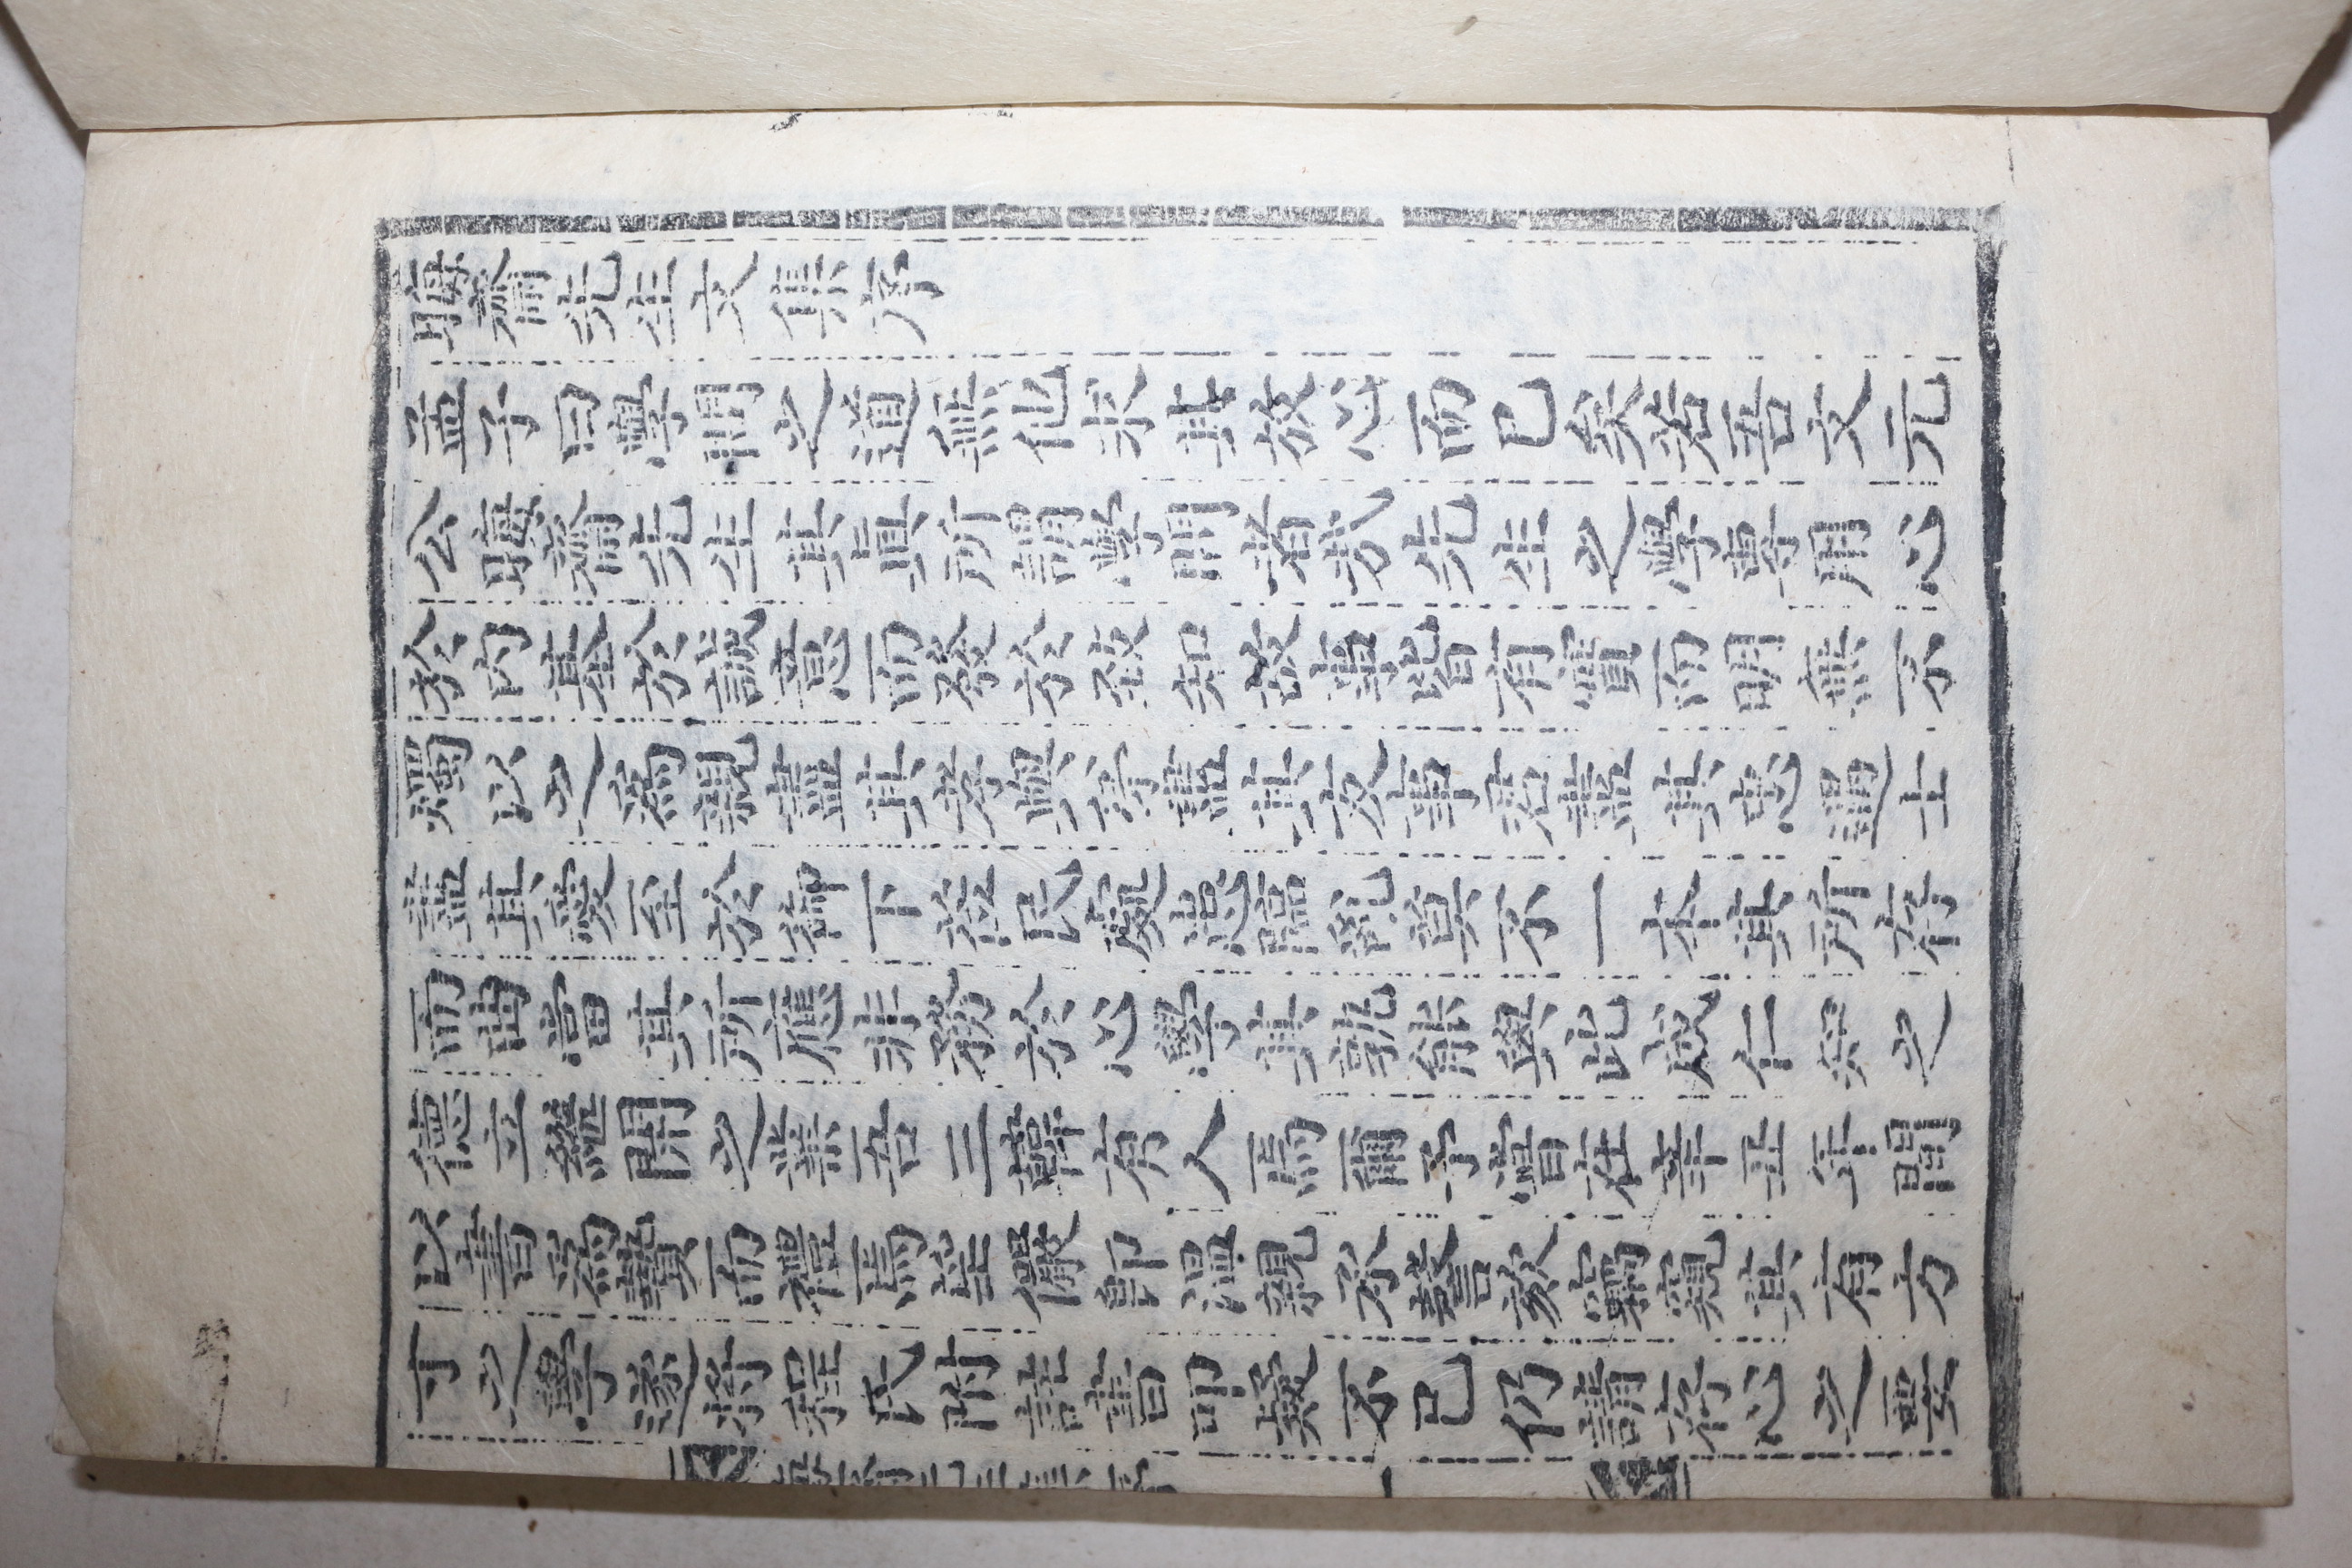 晦齋先生文集序
孟子曰學問之道無他求其放心而已矣若吾文元
公晦齋先生其眞所謂學問者哉先生之學專用心
於內基於誠意而發於致知故事皆有實而明無不
燭以之爲親盡其孝與學盡其友事君盡其忠遇士
盡其愛至於御下莅民處患臨亂莫不一本其所存
而曲當其所應非務於心學其孰能與此成仁
之
德立繼開之業吾三韓有人焉爾予嘗在辛丑年間
以書爲贄而禮焉望儼卽溫親承謦欬竊窺其有方
寸之學遂將程氏附註書叩疑不已仍請存心之要